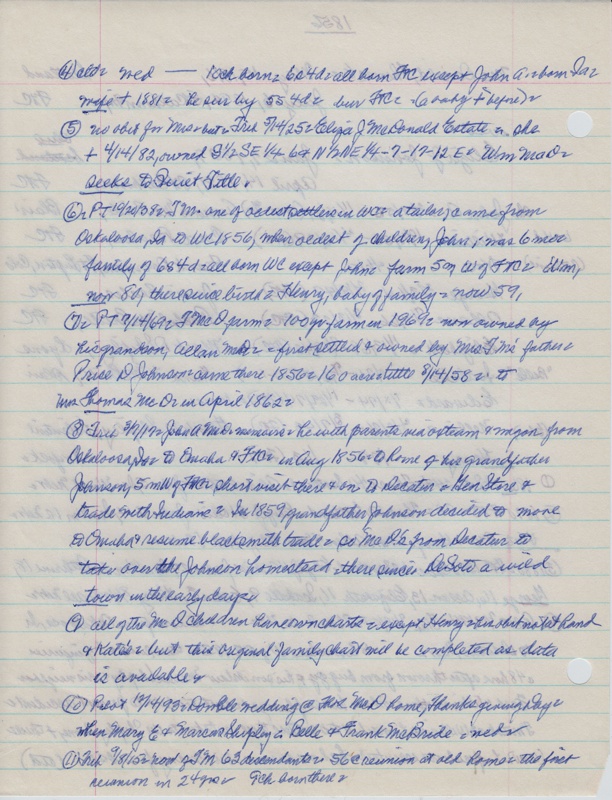 1856
wed — 10 ch born = 6s 4d = all born FtC except John A. = born Ia =
wife + 1881 = he sur by 5s 4d = bur FtC =
⑤ no obit for Mrs = but = Trib 7/14/25 = Eliza J McDonald Estate = she
+ 4/14/82, owned S½ SE¼ - 6 + N½ NE¼ - 7-17-12 E = Wm McD =
seeks to Quiet Title =
⑥ = PT = TM = one of oldest settlers in WC = a tailor; came from
Oskaloosa, Ia to WC 1856, when oldest of children, John, was 6 mos
family of 6s 4d = all born WC except John = farm 5m W of FtC = Wm,
now 80, there since birth = Henry, baby of family = now 59,
⑦ = PT 7/14/69 = T McD farm = 100 yr farm in 1969 = now owned by
his grandson, Allan McD = = first settled & owned by Mrs T Mc' father =
Price D Johnson = came there 1856 = 160 acres title 8/14/58 = to
Mrs Thomas McD = in April 1862 =
⑧ = Trib = John A McD = memoirs = he with parents via oxteam & wagon from
Oskaloosa, Ia = to Omaha & FtC = in Aug 1856 = to home of his grandfather
Johnson, 5 m W of FtC = short visit there & on to Decatur = Gen Store &
trade with Indians = In 1859, grandfather Johnson decided to move
to Omaha & resume blacksmith trade = so McD's from Decatur to
take over the Johnson homestead = there since = DeSoto a wild
town in the early days =
⑨ all of the McD children have own charts = except Henry = his obit not at hand
& Kate's = but this original family chart will be completed as data
is available =
⑩ Double wedding @ Thos McD home, Thanksgiving Day =
when Mary E & Marcus Shipley = Belle & Frank McBride = wed =
⑪ Trib 9/8/15 = now of TM 63 descendants = 56 @ reunion at old home = the first
reunion in 24 yrs = 9 ch born there =